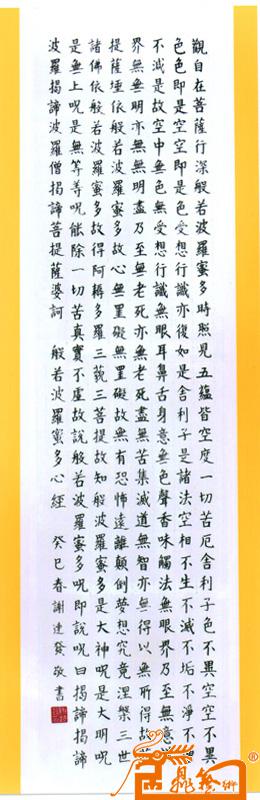 觀自在菩薩行深般若波羅蜜多時照見五蘊皆空度一切苦厄舍利子色不異空空不異
色色即是空空即是色受想行識亦復如是舍利子是諸法空相不生不滅不垢不淨不
不滅是故空中無色無受想行識無眼耳鼻舌身意無色聲香味觸法無眼界乃至無意
界無無明亦無無明盡乃至無老死亦無老死盡無苦集滅道無智亦無得以無所得故菩
提薩埵依般若波羅蜜多故心無罣礙無罣礙故無有恐怖遠離顛倒夢想究竟涅槃三世
諸佛依般若波羅蜜多故得阿耨多羅三藐三菩提故知般波羅蜜多是大神呪是大明呪
是無上呪是無等等呪能除一切苦真實不虛故說般若波羅蜜多呪即說呪曰揭諦揭諦
波羅揭諦波羅僧揭諦菩提薩婆訶 般若波羅蜜多心經 癸巳春謝達發敬書